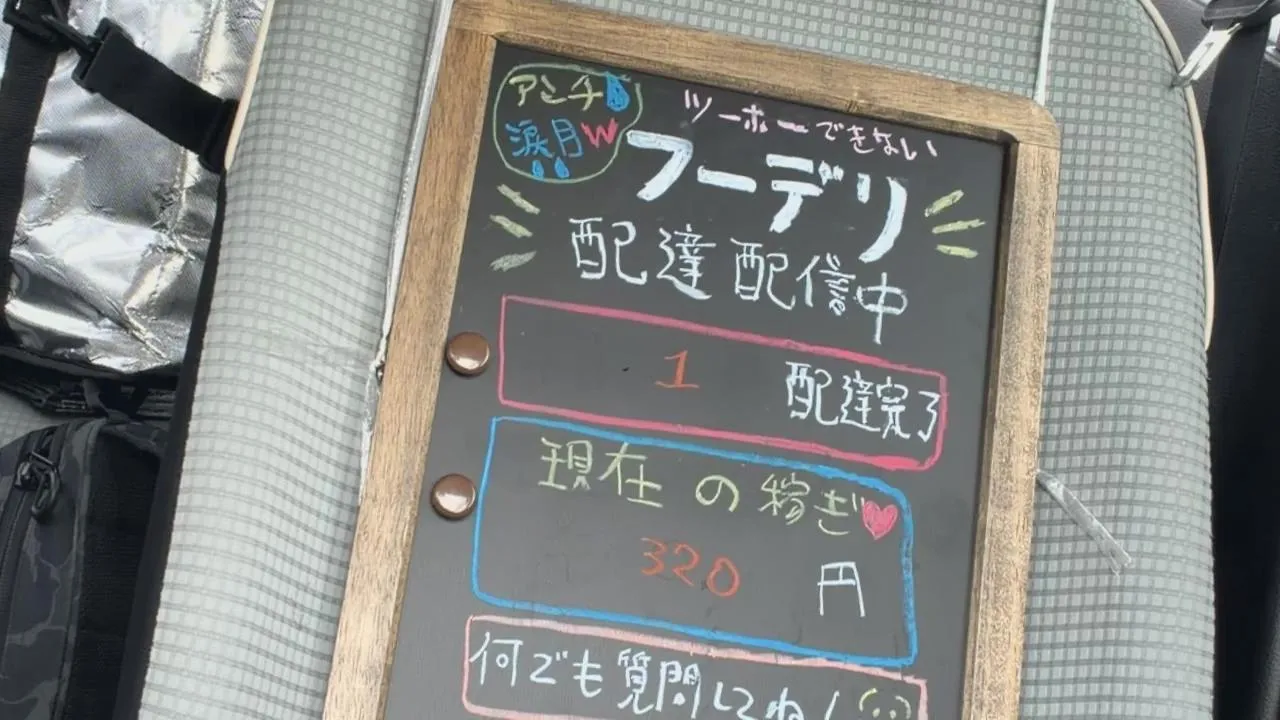 アンチ
涙月W
ツーホーできない
フーデリ
配達配信中
1 配達完了
現在の稼ぎ
320 円
何でも質問してね!